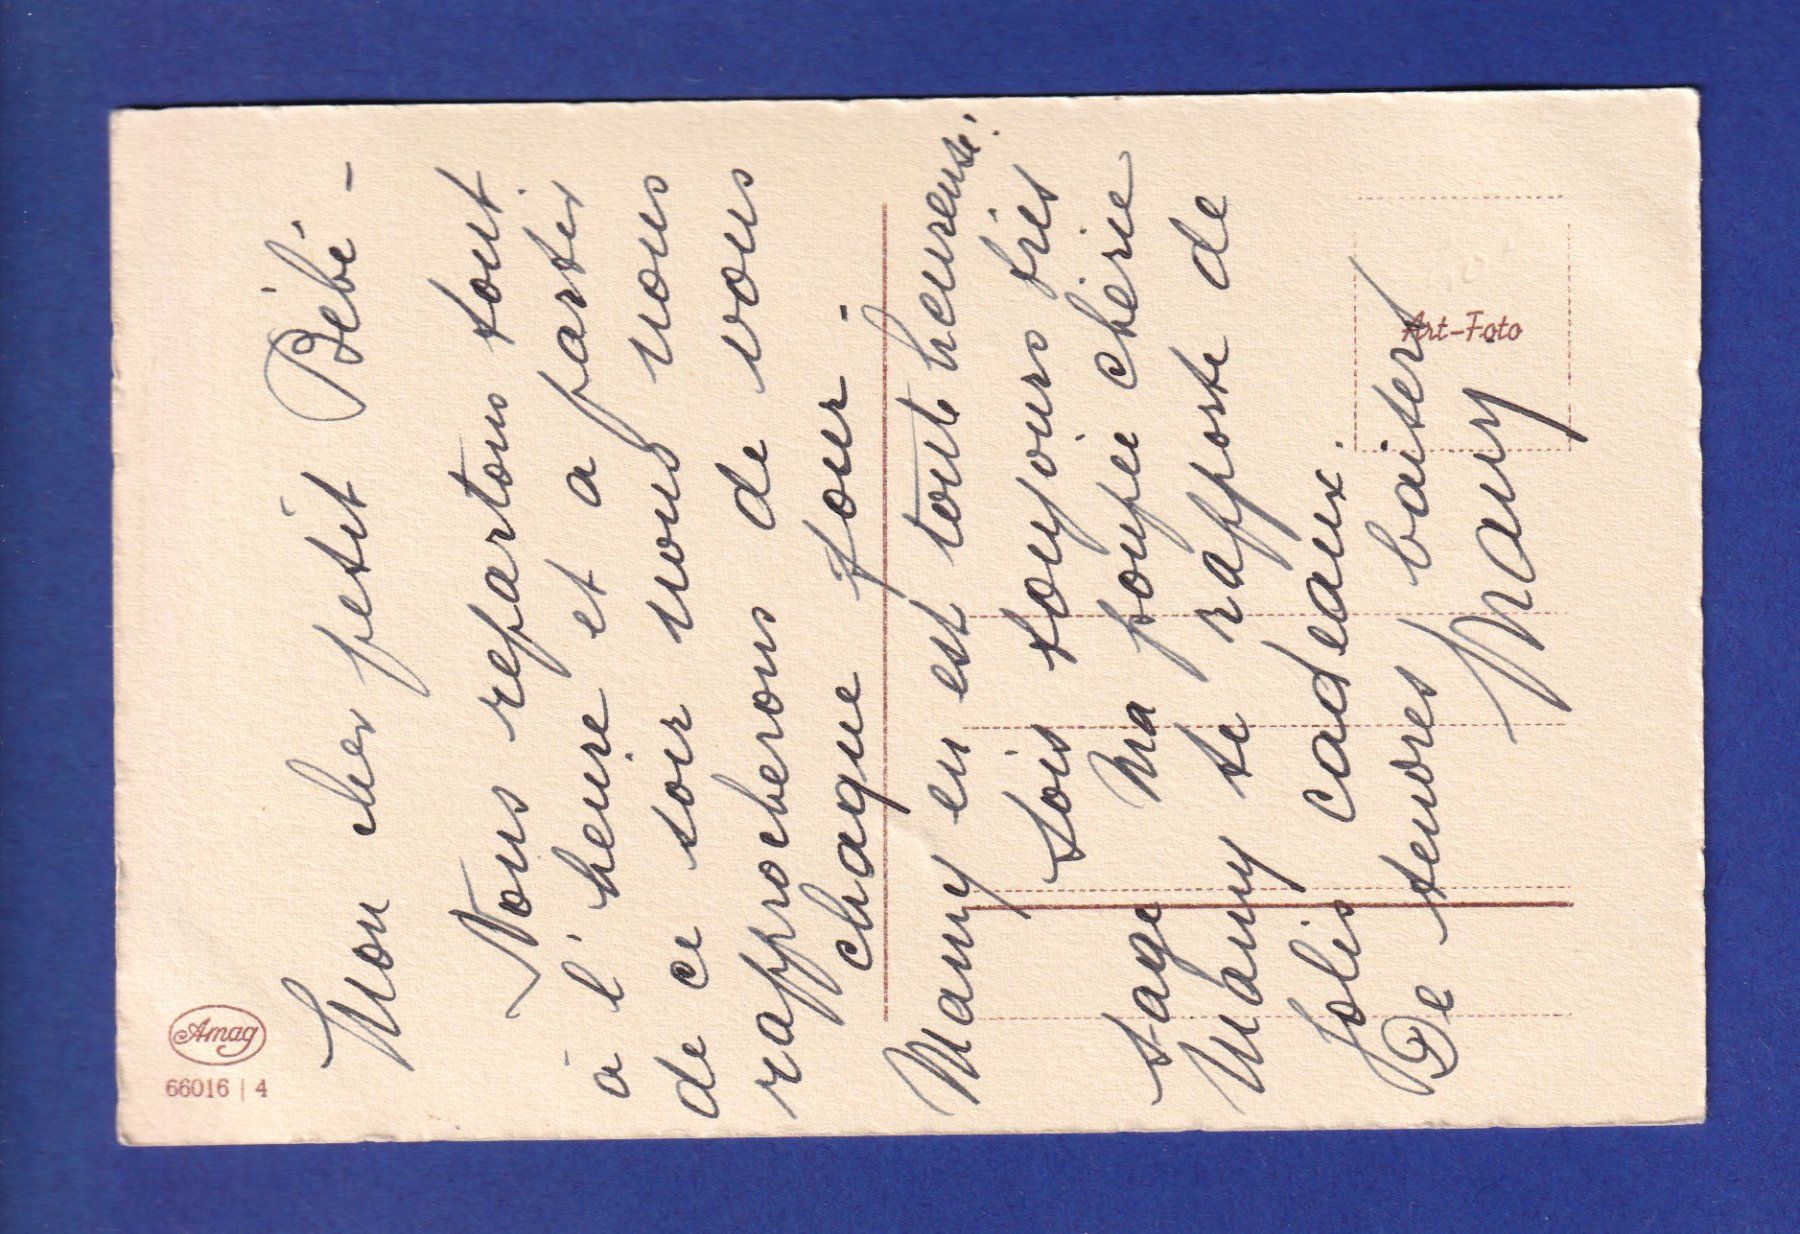 Mon cher petit Bébé -
Nous repartons tout
à l'heure et a partir
de ce soir nous nous
rapprocherons de vous
chaque jour -
Mamy en est toute heureuse!
Sois toujours très
sage Ma poupée chérie
Mamy te rapporte de
jolis cadeaux.
De tendres baisers
Mamy
Amag
66016 | 4
Art-Foto